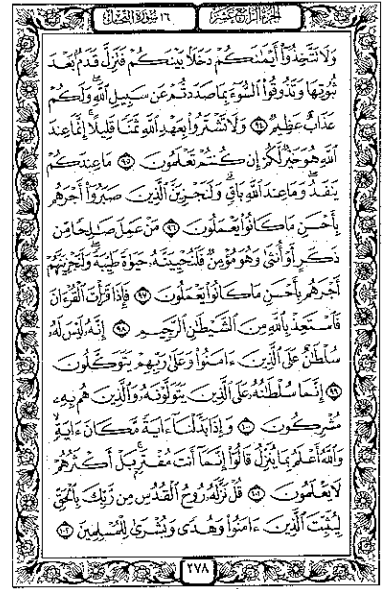 الجزء الرابع عشر ١٦ سورة النحل
وَلَا تَتَّخِذُوٓا۟ أَيْمَٰنَكُمْ دَخَلًۢا بَيْنَكُمْ فَتَزِلَّ قَدَمٌۢ بَعْدَ
ثُبُوتِهَا وَتَذُوقُوا۟ ٱلسُّوٓءَ بِمَا صَدَدتُّمْ عَن سَبِيلِ ٱللَّهِ وَلَكُمْ
عَذَابٌ عَظِيمٌ ۝٩٤ وَلَا تَشْتَرُوا۟ بِعَهْدِ ٱللَّهِ ثَمَنًا قَلِيلًا ۚ إِنَّمَا عِندَ
ٱللَّهِ هُوَ خَيْرٌ لَّكُمْ إِن كُنتُمْ تَعْلَمُونَ ۝٩٥ مَا عِندَكُمْ
يَنفَدُ ۖ وَمَا عِندَ ٱللَّهِ بَاقٍ ۗ وَلَنَجْزِيَنَّ ٱلَّذِينَ صَبَرُوٓا۟ أَجْرَهُم
بِأَحْسَنِ مَا كَانُوا۟ يَعْمَلُونَ ۝٩٦ مَنْ عَمِلَ صَٰلِحًا مِّن
ذَكَرٍ أَوْ أُنثَىٰ وَهُوَ مُؤْمِنٌ فَلَنُحْيِيَنَّهُۥ حَيَوٰةً طَيِّبَةً ۖ وَلَنَجْزِيَنَّهُمْ
أَجْرَهُم بِأَحْسَنِ مَا كَانُوا۟ يَعْمَلُونَ ۝٩٧ فَإِذَا قَرَأْتَ ٱلْقُرْءَانَ
فَٱسْتَعِذْ بِٱللَّهِ مِنَ ٱلشَّيْطَٰنِ ٱلرَّجِيمِ ۝٩٨ إِنَّهُۥ لَيْسَ لَهُۥ
سُلْطَٰنٌ عَلَى ٱلَّذِينَ ءَامَنُوا۟ وَعَلَىٰ رَبِّهِمْ يَتَوَكَّلُونَ
۝٩٩ إِنَّمَا سُلْطَٰنُهُۥ عَلَى ٱلَّذِينَ يَتَوَلَّوْنَهُۥ وَٱلَّذِينَ هُم بِهِۦ
مُشْرِكُونَ ۝١٠٠ وَإِذَا بَدَّلْنَآ ءَايَةً مَّكَانَ ءَايَةٍ ۙ
وَٱللَّهُ أَعْلَمُ بِمَا يُنَزِّلُ قَالُوٓا۟ إِنَّمَآ أَنتَ مُفْتَرٍۭ ۚ بَلْ أَكْثَرُهُمْ
لَا يَعْلَمُونَ ۝١٠١ قُلْ نَزَّلَهُۥ رُوحُ ٱلْقُدُسِ مِن رَّبِّكَ بِٱلْحَقِّ
لِيُثَبِّتَ ٱلَّذِينَ ءَامَنُوا۟ وَهُدًى وَبُشْرَىٰ لِلْمُسْلِمِينَ ۝١٠٢
٢٧٨